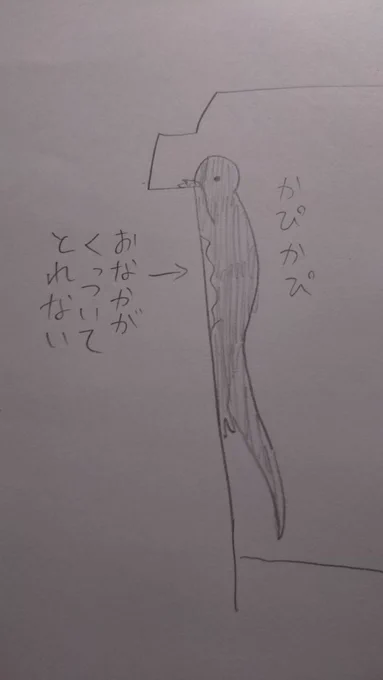 かぴかぴ
おなかが
くっついて
とれない